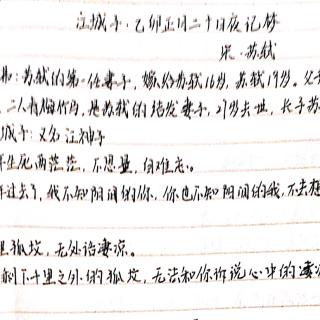 江城子·乙卯正月二十日夜记梦
宋·苏轼
弗:苏轼的第一任妻子,嫁给苏轼16岁,苏轼19岁。父
,二人青梅竹马,是苏轼的结发妻子,27岁去世,长子苏
城子:又名江神子
年生死两茫茫,不思量,自难忘。
年过去了,我不知阴间的你,你也不知阳间的我,不去想
里孤坟,无处话凄凉。
剩下千里之外的孤坟,无法和你诉说心中的凄凉